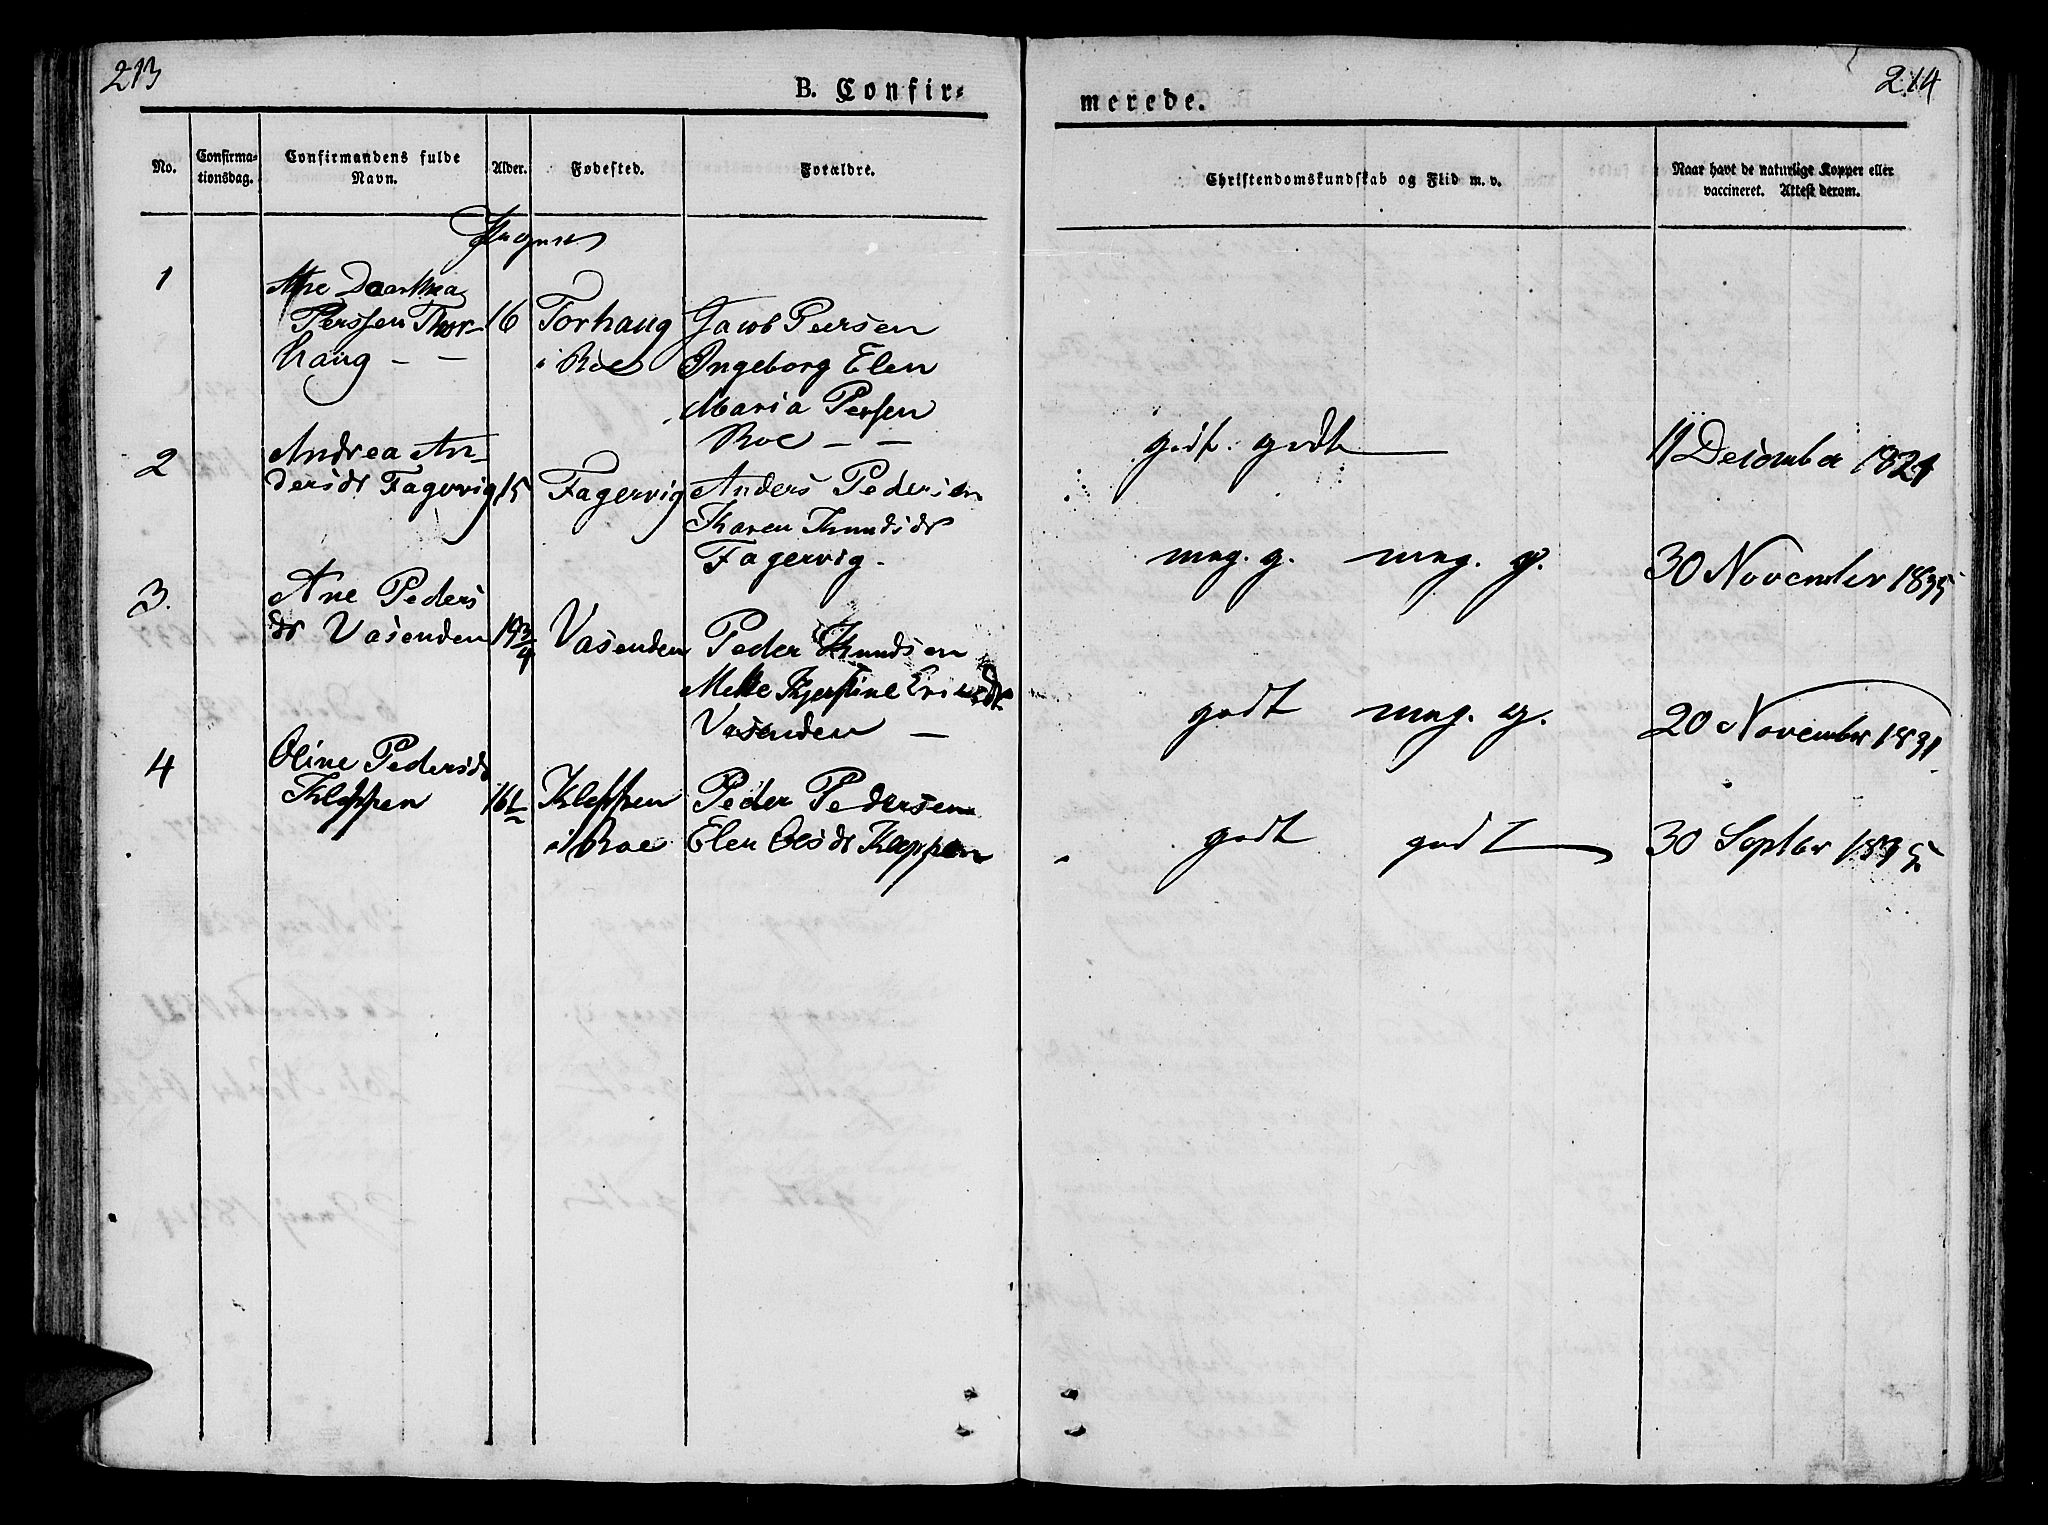 213
B. Confir-
merede.
214
No.
Confirma-
tionsdag.
Confirmandens fulde
Navn.
Alder.
Fødested.
Forældre.
Christendomskundskab og Flid m. v.
Naar havt de naturlige Kopper eller
vaccineret. Attest derom.
1
Ane
Perssen Thor-
haug - -
16
Torhaug
i Roe
Jacob Peersen
Ingeborg Elen
Maria Persen
Roe - -
godt. godt
11 December 1821
2
Andrea An-
dersdr Fagervig
15
Fagervig
Anders Pedersen
Karen Knudsdr
Fagervig -
mag. g. mag. g.
30 November 1835
3.
Ane Peders
dr Vasenden
14 3/4
Vasenden
Peder Knudsen
Mette Kjerstine
Vasenden -
godt mag. g.
20 November 1831
4
Oline Pedersdr
Kleppen
16
Kleppen
i Roe
Peder Pedersen
Elen Olsdr Kleppen
godt godt
30 Septbr 1835